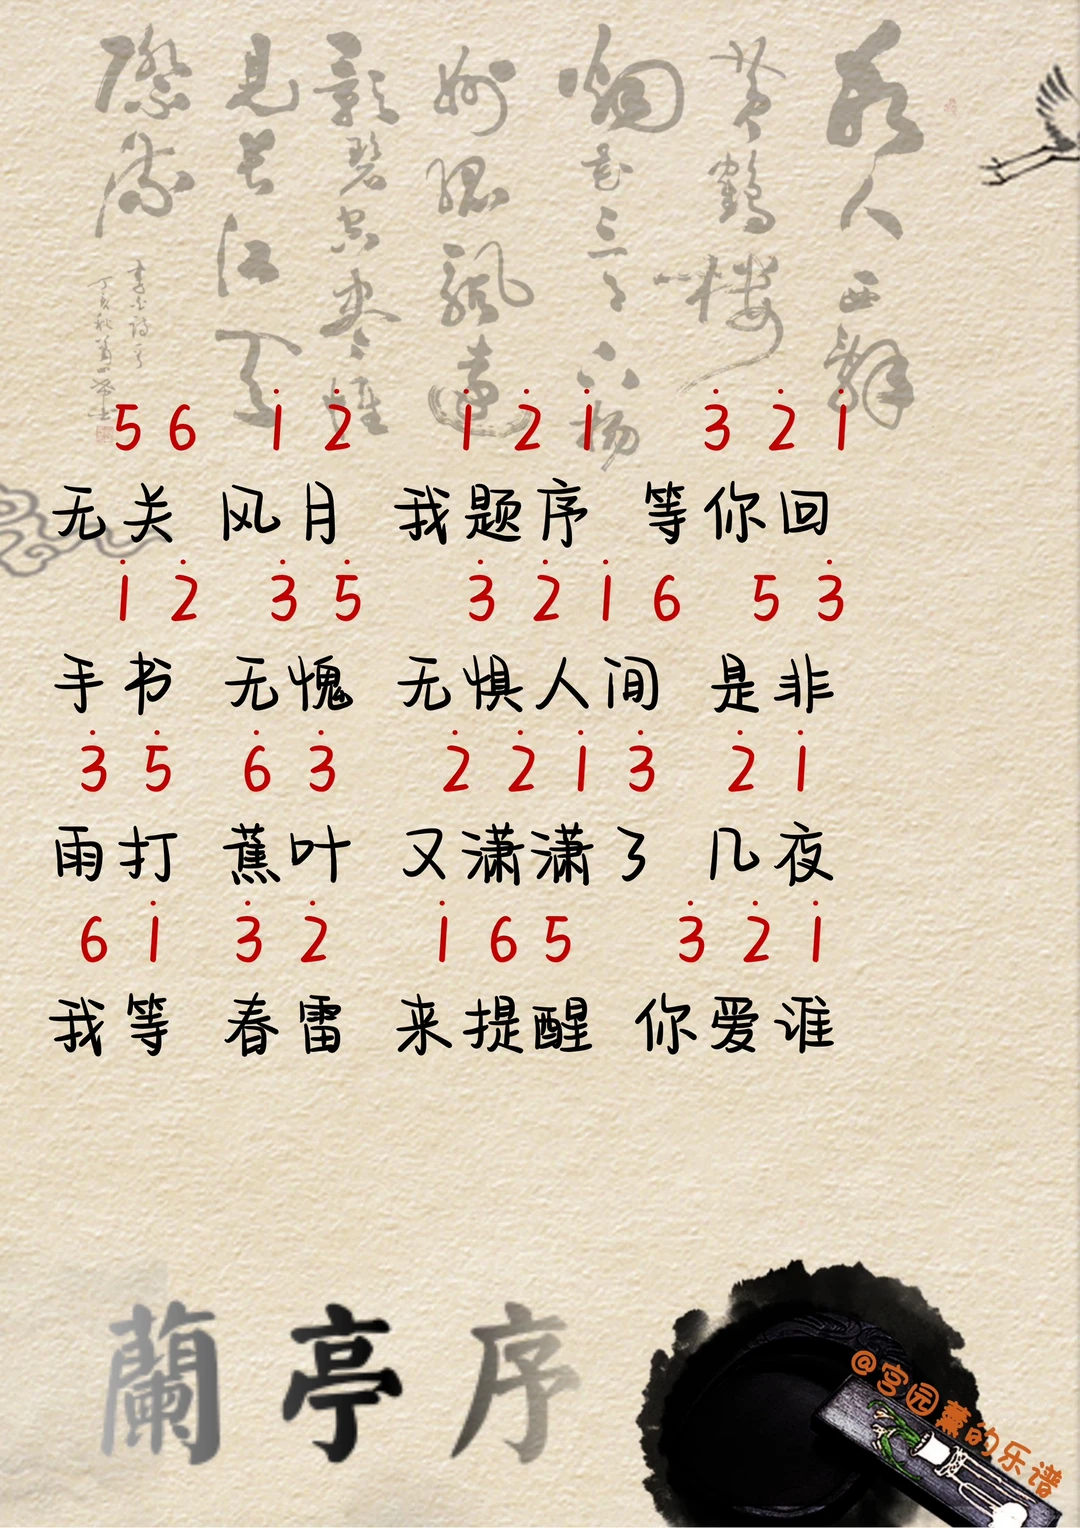 故人西辭
黄鶴樓
烟花三月下揚
州孤帆遠
影碧空尽唯
見長江天
際流
5 6 1̇ 2̇ 1̇ 2̇ 1̇ 3̇ 2̇ 1̇
无关 风月 我题序 等你回
1̇ 2̇ 3̇ 5̇ 3̇ 2̇ 1̇ 6 5 3̇
手书 无愧 无惧人间 是非
3̇ 5̇ 6̇ 3̇ 2̇ 2̇ 1̇ 3̇ 2̇ 1̇
雨打 蕉叶 又潇潇了 几夜
6 1̇ 3̇ 2̇ 1̇ 6 5 3̇ 2̇ 1̇
我等 春雷 来提醒 你爱谁
蘭亭序
@宫园薰的乐谱